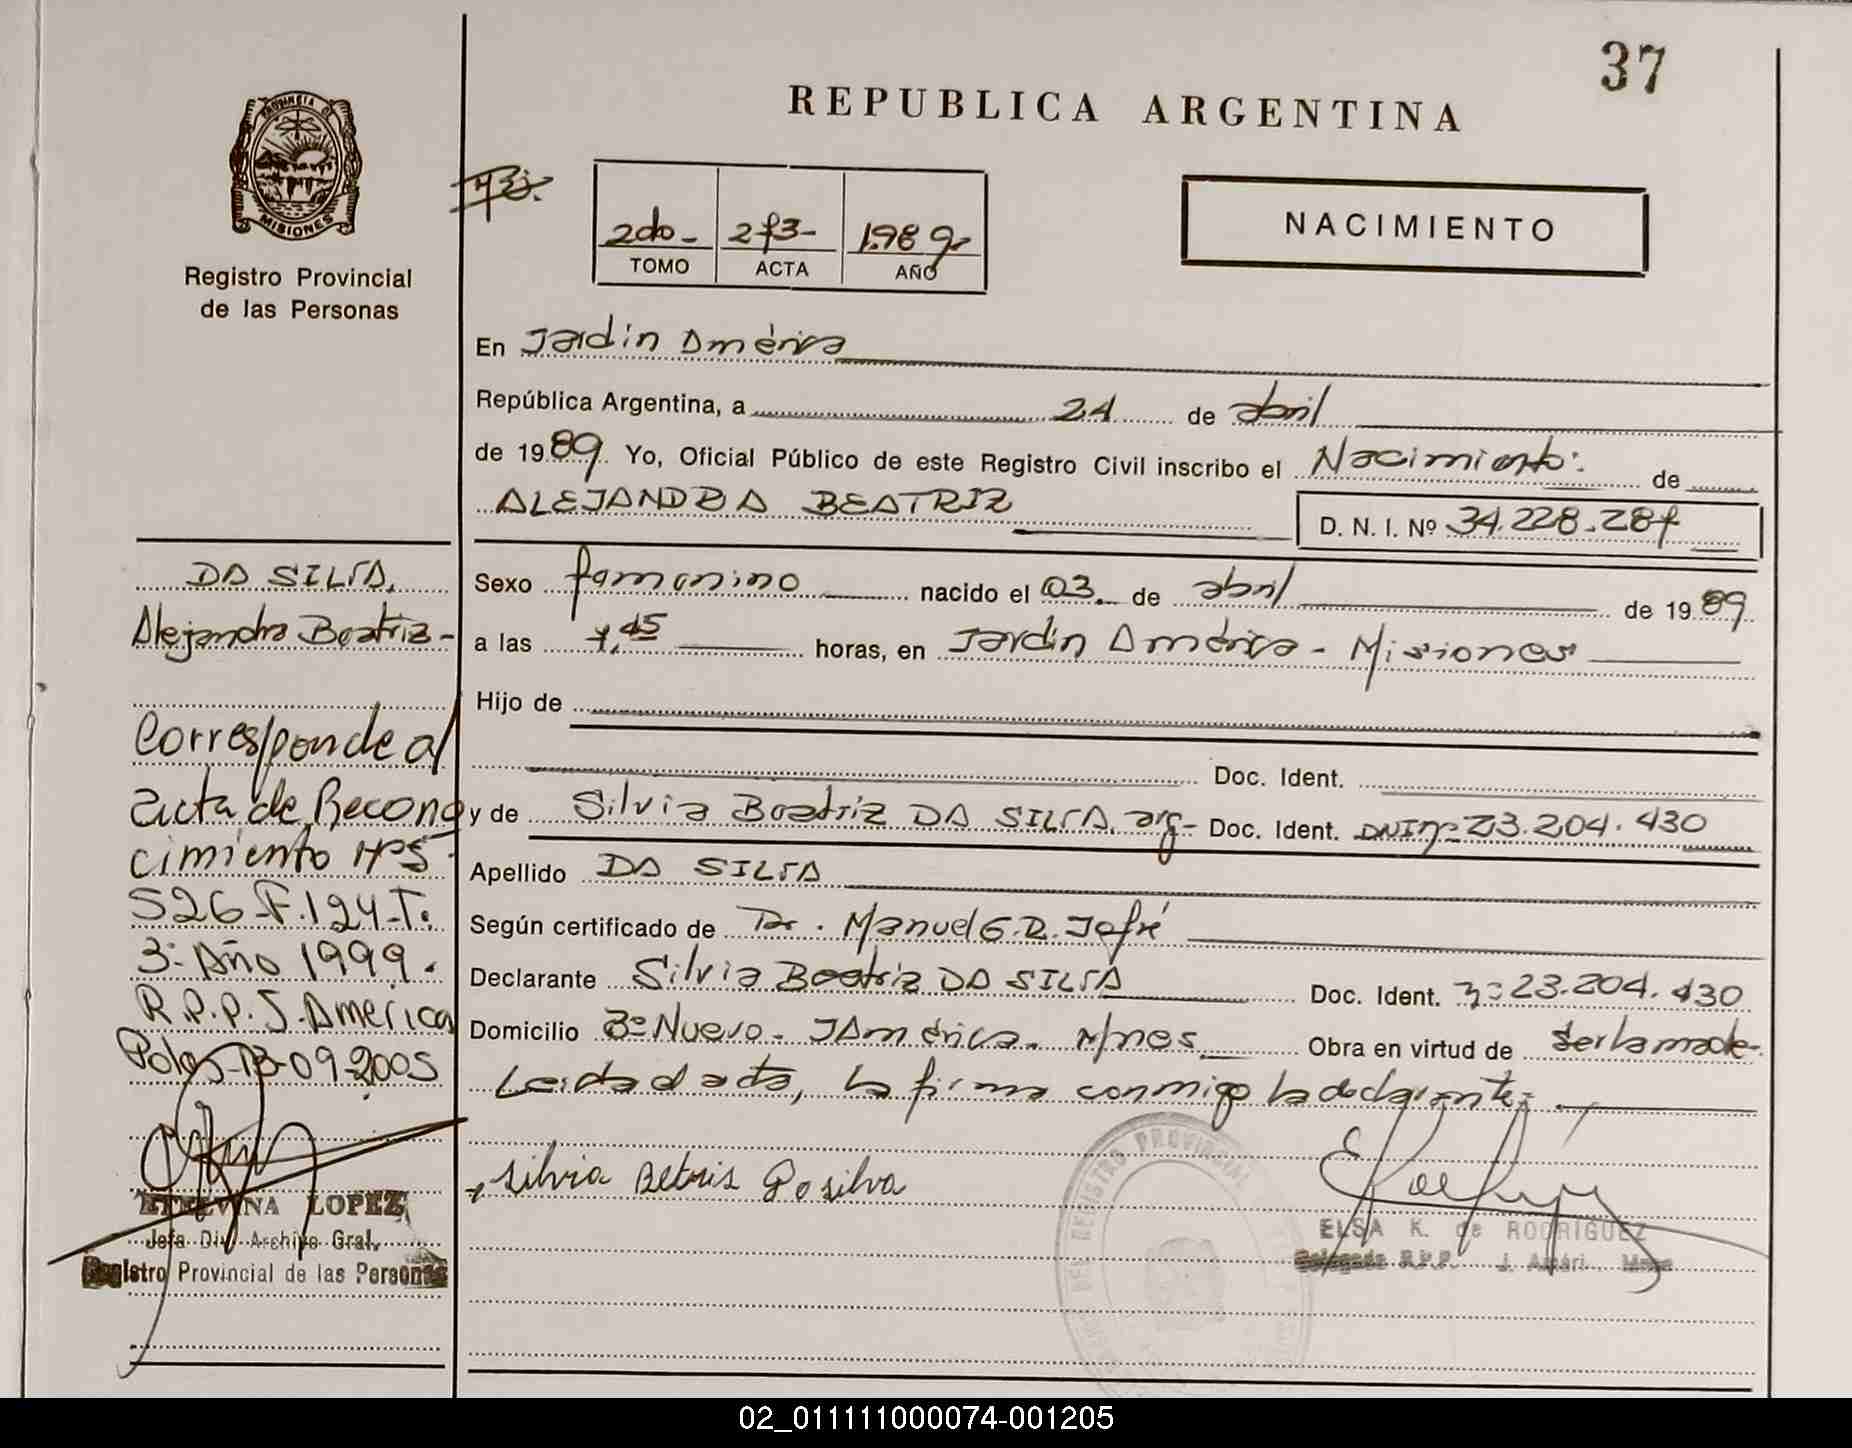 37
REPUBLICA ARGENTINA
PROVINCIA DE
MISIONES
Registro Provincial
de las Personas
2do - 273- 1.989-
TOMO ACTA AÑO
NACIMIENTO
En Jardín América
República Argentina, a 24 de abril
de 1989 Yo, Oficial Público de este Registro Civil inscribo el Nacimiento: de
ALEJANDRA BEATRIZ
D. N. I. Nº 34.228.287
Sexo femenino nacido el 03. de abril de 1989
a las 7,45 horas, en Jardín América - Misiones
Hijo de
Doc. Ident.
y de Silvia Beatriz DA SILVA. arg- Doc. Ident. DNI nº 23.204.430
Apellido DA SILVA
Según certificado de Dr. Manuel G.R. Jofré
Declarante Silvia Beatriz DA SILVA Doc. Ident. nº 23.204.430
Domicilio Bº Nuevo - J América. M/nes Obra en virtud de ser la madre-
Leida el acta, la firma conmigo la declarante-
Silvia Betris Da silva
REGISTRO PROVINCIAL
ELSA K. de RODRIGUEZ
Delegada R.P.P. J. Améri. Mnes
DA SILVA,
Alejandra Beatriz-
Corresponde al
acta de Recono
cimiento Nº5
526-F.124-T.
3: Año 1999.
R.P.P. J. America
Pdas 13-09-2005
ETELVINA LOPEZ
Jefa Div. Archivo Gral.
Registro Provincial de las Personas
02_011111000074-001205